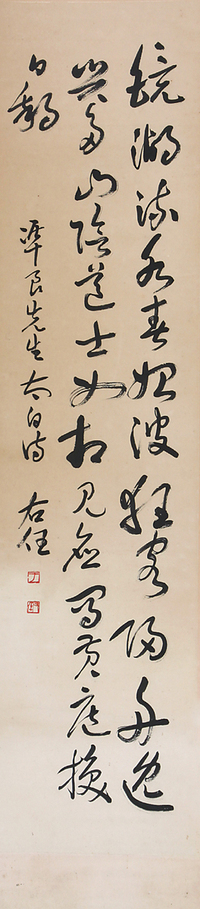 鏡湖流水春始波狂客歸舟逸
興多山陰道士如相見應寫黃庭換
白鵝
準良先生 太白詩
右任